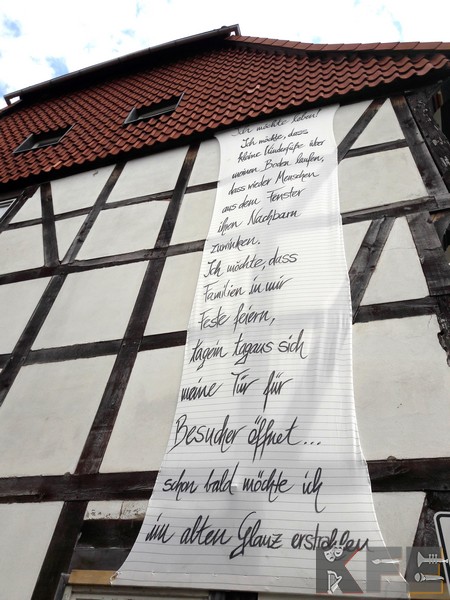 Ich möchte leben!
Ich möchte, dass
kleine Kinderfüße über
meinen Boden laufen,
dass wieder Menschen
aus dem Fenster
ihren Nachbarn
zuwinken.
Ich möchte, dass
Familien in mir
Feste feiern,
tagein tagaus sich
meine Tür für
Besucher öffnet...
schon bald möchte ich
im alten Glanz erstrahlen
KFE